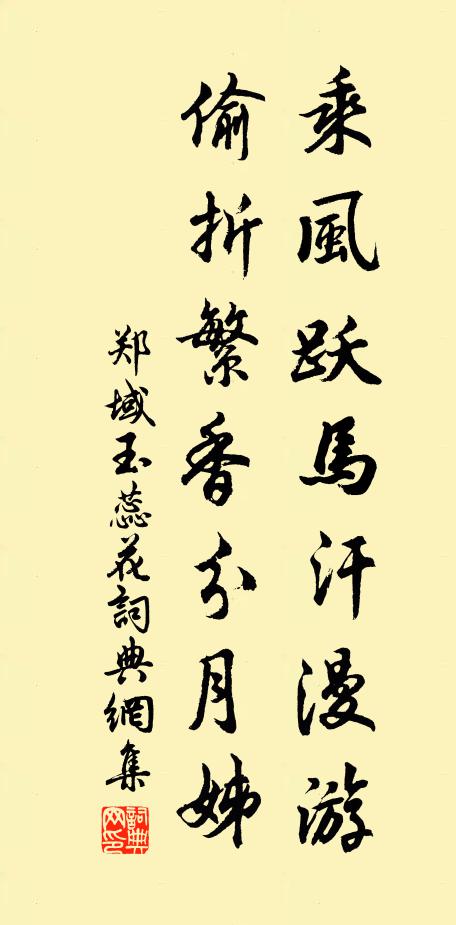 乘風跃馬汗漫游
偷折繁香分月姊
郑域玉蕊花詞典網集
詞典网印